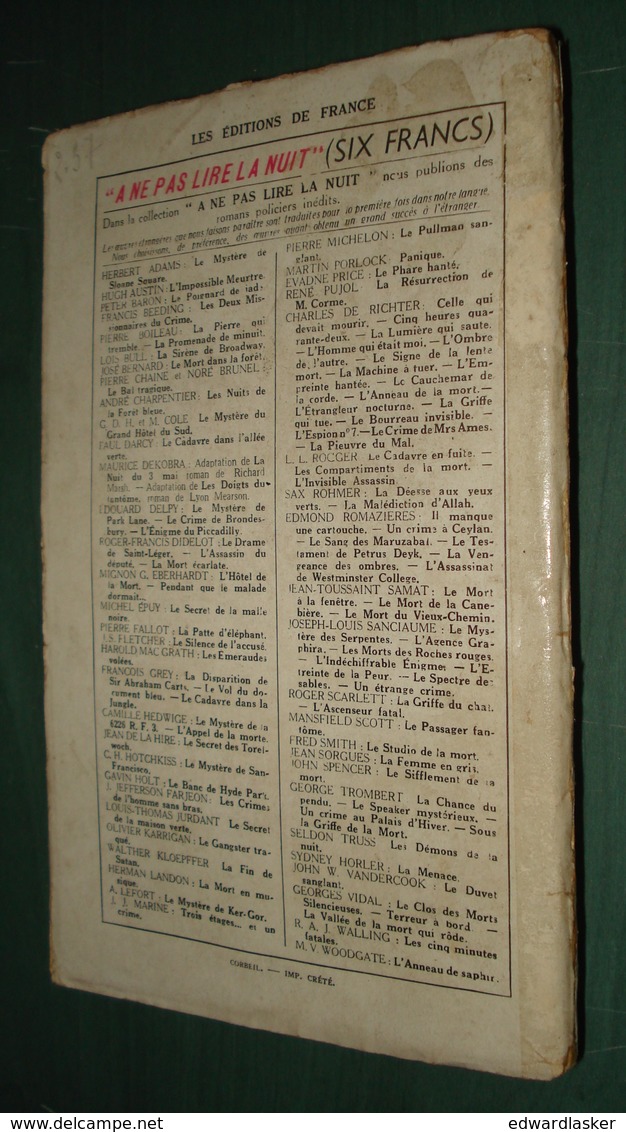 LES ÉDITIONS DE FRANCE
"A NE PAS LIRE LA NUIT" (SIX FRANCS)
Dans la collection " A NE PAS LIRE LA NUIT " nous publions des
romans policiers inédits.
Les œuvres étrangères que nous faisons paraître sont traduites pour la première fois dans notre langue.
Nous choisissons, de préférence, des œuvres ayant obtenu un grand succès à l'étranger
HERBERT ADAMS : Le Mystère de
Sloane Square.
HUGH AUSTIN : L'Impossible Meurtre.
PETER BARON : Le Poignard de jade.
FRANCIS BEEDING : Les Deux Mis-
sionnaires du Crime.
PIERRE BOILEAU : La Pierre qui
tremble. — La Promenade de minuit.
LOIS BULL : La Sirène de Broadway.
JOSÉ BERNARD : Le Mort dans la forêt.
PIERRE CHAINE et NORÉ BRUNEL :
Le Bal tragique.
ANDRÉ CHARPENTIER : Les Nuits de
la Forêt bleue.
G. D. H. et M. COLE Le Mystère du
Grand Hôtel du Sud.
PAUL DARCY : Le Cadavre dans l'allée
verte.
MAURICE DEKOBRA : Adaptation de La
Nuit du 3 mai roman de Richard
Marsh. — Adaptation de Les Doigts du
fantôme, roman de Lyon Mearson.
ÉDOUARD DELPY : Le Mystère de
Park Lane. — Le Crime de Brondes-
bury. — L'Énigme du Piccadilly.
ROGER-FRANCIS DIDELOT : Le Drame
de Saint-Léger. — L'Assassin du
député. — La Mort écarlate.
MIGNON G. EBERHARDT : L'Hôtel de
la Mort. — Pendant que le malade
dormait...
MICHEL ÉPUY : Le Secret de la malle
noire.
PIERRE FALLOT : La Patte d'éléphant.
J.S. FLETCHER : Le Silence de l'accusé.
HAROLD MAC GRATH : Les Emeraudes
volées.
FRANÇOIS GREY : La Disparition de
Sir Abraham Carts. — Le Vol du do-
cument bleu. — Le Cadavre dans la
Jungle.
CAMILLE HEDWIGE : Le Mystère de la
6226 R. F. 3. — L'Appel de la morte.
JEAN DE LA HIRE : Le Secret des Torel-
woch.
C. H. HOTCHKISS : Le Mystère de San-
Francisco.
GAVIN HOLT : Le Banc de Hyde Park.
J. JEFFERSON FARJEON : Les Crimes
de l'homme sans bras.
LOUIS-THOMAS JURDANT Le Secret
de la maison verte.
OLIVIER KARRIGAN : Le Gangster tra-
qué.
WALTHER KLOEPFFER La Fin de
Satan.
HERMAN LANDON : La Mort en mu-
sique.
A. LEFORT : Le Mystère de Ker-Gor.
J. J. MARINE : Trois étages... et un
crime.
PIERRE MICHELON : Le Pullman san-
glant.
MARTIN PORLOCK : Panique.
EVADNE PRICE : Le Phare hanté.
RENÉ PUJOL : La Résurrection de
M. Corme.
CHARLES DE RICHTER : Celle qui
devait mourir. — Cinq heures qua-
rante-deux. — La Lumière qui saute.
— L'Homme qui était moi. — L'Ombre
de l'autre. — Le Signe de la lente
mort. — La Machine à tuer. — L'Em-
preinte hantée. — Le Cauchemar de
la corde. — L'Anneau de la mort. —
L'Étrangleur nocturne. — La Griffe
qui tue. — Le Bourreau invisible. —
L'Espion nº 7. — Le Crime de Mrs Ames.
— La Pieuvre du Mal.
L. L. ROCGER Le Cadavre en fuite. —
Les Compartiments de la mort. —
L'Invisible Assassin.
SAX ROHMER : La Déesse aux yeux
verts. — La Malédiction d'Allah.
EDMOND ROMAZIÈRES : Il manque
une cartouche. — Un crime à Ceylan.
— Le Sang des Maruzabal. — Le Tes-
tament de Petrus Deyk. — La Ven-
geance des ombres. — L'Assassinat
de Westminster College.
JEAN-TOUSSAINT SAMAT : Le Mort
à la fenêtre. — Le Mort de la Cane-
bière. — Le Mort du Vieux-Chemin.
JOSEPH-LOUIS SANCIAUME : Le Mys-
tère des Serpentes. — L'Agence Gra-
phira. — Les Morts des Roches rouges.
— L'Indéchiffrable Énigme. — L'E-
treinte de la Peur. — Le Spectre des
sables. — Un étrange crime.
ROGER SCARLETT : La Griffe du chat.
— L'Ascenseur fatal.
MANSFIELD SCOTT : Le Passager fan-
tôme.
FRED SMITH : Le Studio de la mort.
JEAN SORGUES : La Femme en gris.
JOHN SPENCER : Le Sifflement de la
mort.
GEORGE TROMBERT La Chance du
pendu. — Le Speaker mystérieux. —
Un crime au Palais d'Hiver. — Sous
la Griffe de la Mort.
SELDON TRUSS Les Démons de la
nuit.
SYDNEY HORLER : La Menace.
JOHN W. VANDERCOOK : Le Duvet
sanglant.
GEORGES VIDAL : Le Clos des Morts
Silencieuses. — Terreur à bord —
La Vallée de la mort qui rôde.
R. A. J. WALLING : Les cinq minutes
fatales.
M. V. WOODGATE : L'Anneau de saphir.
CORBEIL. — IMP. CRÉTÉ.
delcampe.net
edwardlasker